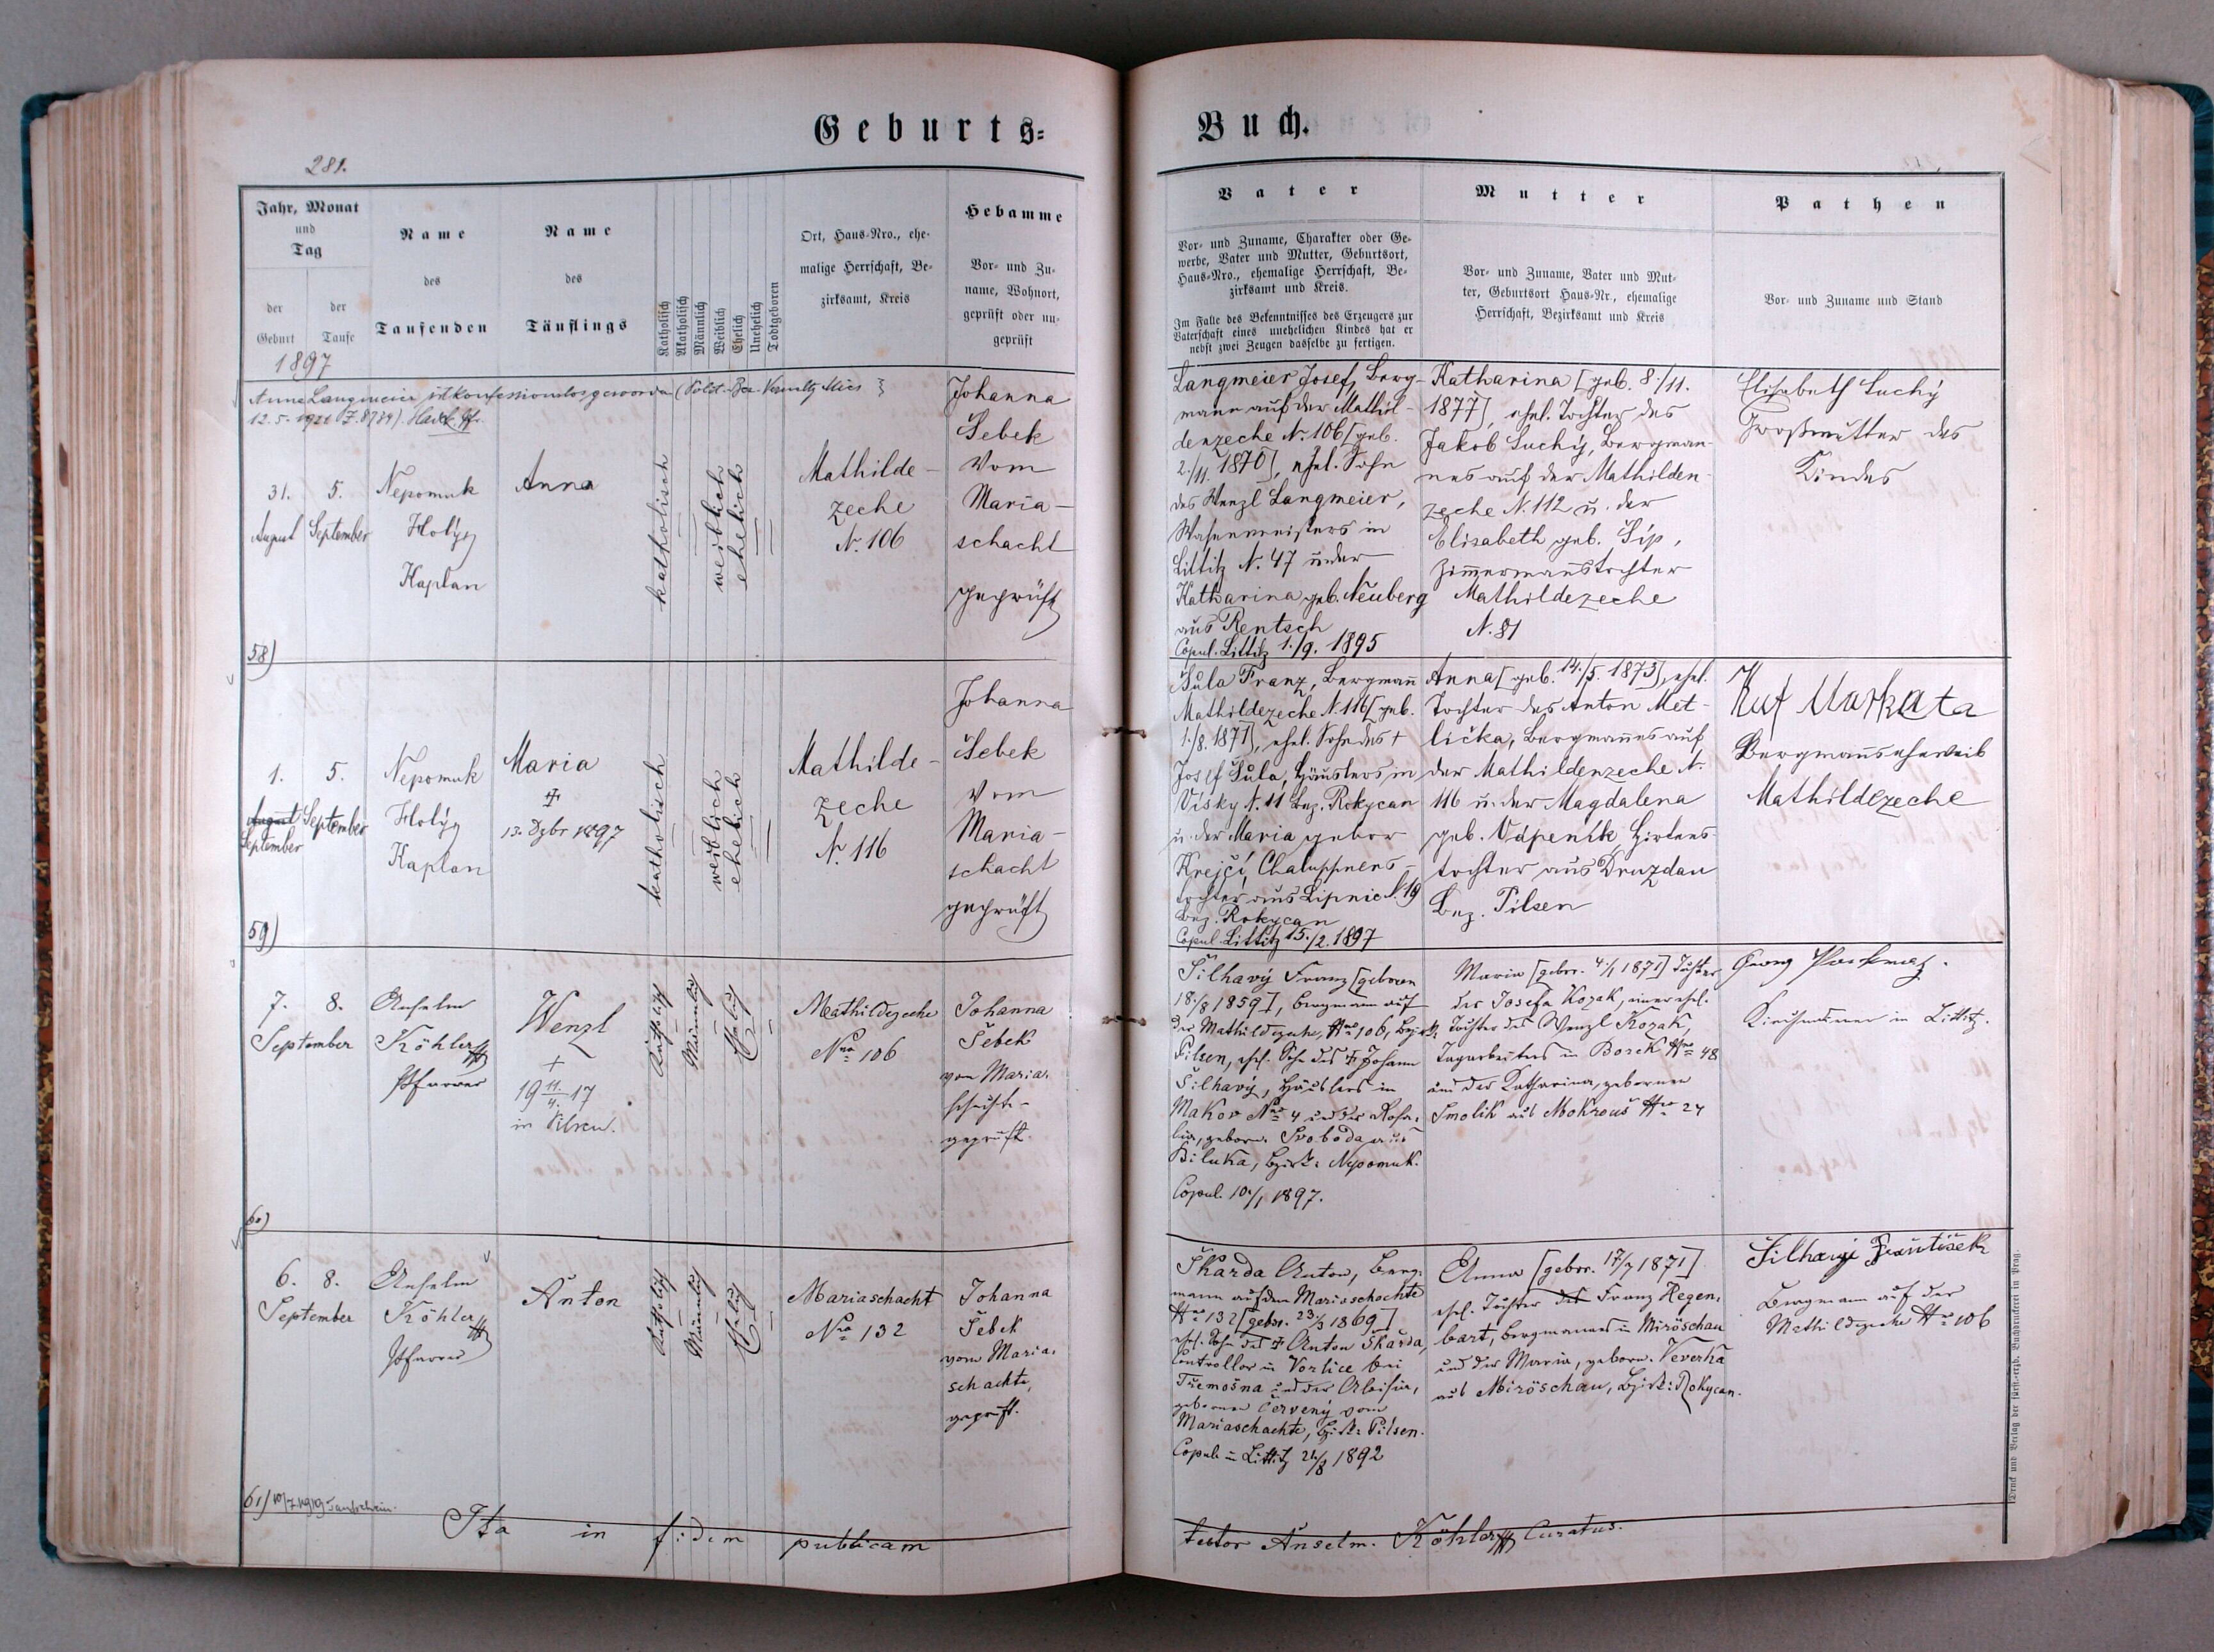 Geburts=
281.
Jahr, Monat
und
Tag
der
Geburt
der
Taufe
Name
des
Taufenden
Name
des
Täuflings
Katholisch
Akatholisch
Männlich
Weiblich
Ehelich
Unehelich
Todtgeboren
Ort, Haus=Nro., ehe=
malige Herrschaft, Be=
zirksamt, Kreis
Hebamme
Vor= und Zu=
name, Wohnort,
geprüft oder un=
geprüft
1897
Anna Langmeier ist konfessionslos geworden (
12.5.1921 Z. 8789).
31.
August
5.
September
Nepomuk
Holý
Kaplan
Anna
katholisch
weiblich
ehelich
Mathilde-
zeche
N. 106
Johanna
Šebek
vom
Maria-
schacht
geprüft
58)
1.
August
September
5.
September
Nepomuk
Holý
Kaplan
Maria
13. Dzbr 1897
katholisch
weiblich
ehelich
Mathilde-
zeche
N. 116
Johanna
Šebek
vom
Maria-
schacht
geprüft
59)
7.
September
8.
Anselm
Köhler
Pfarrer
Wenzl
+
19 11./4. 17
in Pilsen.
Katholisch
Männlich
Ehelich
Mathildezeche
Nro 106
Johanna
Šebek
vom Maria-
schachte
geprüft.
60)
6.
September
8.
Anselm
Köhler
Pfarrer
Anton
Katholisch
Männlich
Ehelich
Mariaschacht
Nro 132
Johanna
Šebek
vom Maria-
schachte,
geprüft.
61) 10/7 1919 Taufschein.
Ita in fidem publicam
Buch.
Vater
Vor= und Zuname, Charakter oder Ge=
werbe, Vater und Mutter, Geburtsort,
Haus=Nro., ehemalige Herrschaft, Be=
zirksamt und Kreis.
Im Falle des Bekenntnisses des Erzeugers zur
Vaterschaft eines unehelichen Kindes hat er
nebst zwei Zeugen dasselbe zu fertigen.
Mutter
Vor= und Zuname, Vater und Mut=
ter, Geburtsort Haus=Nr., ehemalige
Herrschaft, Bezirksamt und Kreis
Pathen
Vor= und Zuname und Stand
Langmeier Josef, Berg-
mann auf der Mathil-
denzeche N. 106 [geb.
2./11. 1870], ehel. Sohn
des Wenzl Langmeier,
Wasenmeisters in
Littitz N. 47 u. der
Katharina geb. Neuberg
aus Rentsch
Copul. Littitz 1./9. 1895
Katharina [geb. 8./11.
1877], ehel. Tochter des
Jakob Suchý, Bergman-
nes auf der Mathilden-
zeche N. 112 u. der
Elisabeth geb. Šíp,
Zimmermannstochter
Mathildezeche
N. 81
Elisabeth Suchý
Großmutter des
Kindes
Šula Franz, Bergmann
Mathildezeche N. 116 [geb.
1./8. 1871], ehel. Sohn des +
Josef Šula, Häuslers in
Vísky N. 11 Bez. Rokycan
u. der Maria gebor
Krejčí, Chaluppners-
tochter aus Lipnic N. 19
Bez. Rokycan
Copul. Littitz 15./2. 1897
Anna [geb. 14./5. 1873], ehel.
Tochter des Anton Met-
lička, Bergmannes auf
der Mathildenzeche N.
116 u. der Magdalena
geb. Odpeník Hirtens-
tochter aus Druzdau
Bez. Pilsen
Markata
Bergmannseheweib
Mathildezeche
Šilhavý Franz [geboren
18./8 1859], Bergmann auf
der Mathildezeche, Nro 106, Bezirk:
Pilsen, ehel. Sohn des + Johann
Šilhavý, Häuslers in
Makov Nro 4 und der Rosa-
lia, geborn. Svoboda aus
Biluka, Bezirk: Nepomuk.
Copul. 10./1 1897.
Maria [gebor. 4./1 1871] Tochter
der Josefa Kozak, einer ehel.
Tochter des Wenzl Kozak,
Tagarbeiters in Borek Nro 48
und der Katharina, gebornen
Smolik aus Mokrouš Nro 24
Georg
Kirchendiener in Littitz.
Škarda Anton, Berg-
mann auf dem Mariaschachte
Nro 132 [gebor. 23./3 1869]
ehel. Sohn des + Anton Škarda,
Controllor in Vorlice bei
Třemošna und der Aloisia,
gebornen Červený vom
Mariaschachte, Bezirk: Pilsen.
Copul. in Littitz 21/8 1892
Anna [gebor. 17/7 1871]
ehel. Tochter des Franz Hegen-
bart, Bergmannes in Miröschau
und der Maria, geborn. Veverka
aus Miröschau, Bezirk: Rokycan.
Šilhavý František
Bergmann auf der
Mathildezeche Nro 106
testor Anselm. Köhler Curatus.
Druck und Verlag der fürst-erzb. Buchdruckerei in Prag.